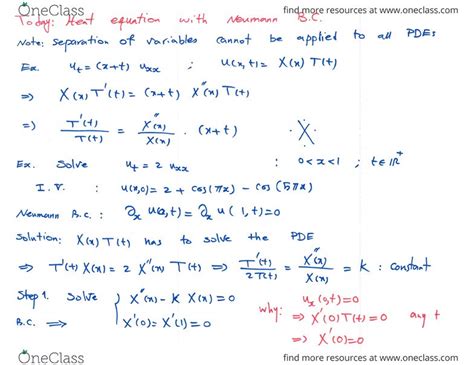 OneClass
find more resources at www.oneclass.com
Today: Heat equation with Neumann B.C.
Note: separation of variables cannot be applied to all PDEs
Ex. u_t = (x+t) u_xx ; u(x,t) = X(x) T(t)
⇒ X(x) T'(t) = (x+t) X''(x) T(t)
⇒ T'(t)/T(t) = X''(x)/X(x) · (x+t)
Ex. Solve u_t = 2 u_xx : 0<x<1 ; t∈ℝ⁺
I.V. : u(x,0) = 2 + cos(πx) − cos(5πx)
Neumann B.C. : ∂_x u(0,t) = ∂_x u(1,t) = 0
Solution: X(x) T(t) has to solve the PDE
⇒ T'(t) X(x) = 2 X''(x) T(t) ⇒ T'(t)/2T(t) = X''(x)/X(x) = K : constant
Step 1. Solve { X''(x) − K X(x) = 0
B.C. ⇒ X'(0) = X'(1) = 0
why: u_x(0,t) = 0
⇒ X'(0) T(t) = 0 any t
⇒ X'(0) = 0
OneClass
find more resources at www.oneclass.com